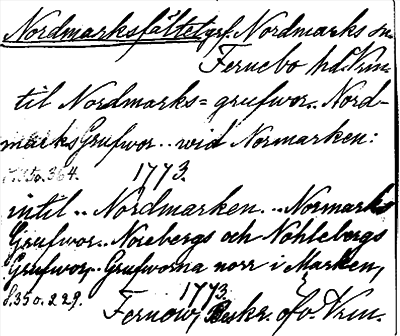 Nordmarksfältet grf. Nordmarks sn.
Fernebo hd. Vrm-
til Nordmarks= grufwor.. Nord-
marks Grufwor.. wid Normarken:
s. 364. 1773.
intil.. Nordmarken... Normarks
Grufwor.. Norebergs och Nohlebergs
Grufwor,.. Grufworna norr i Marken,
s. 35 o. 229. 1773.
Fernow, Beskr. öfv. Vrm.